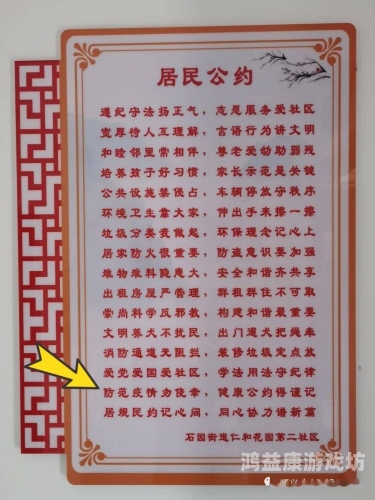 居民公约
遵纪守法扬正气，志愿服务爱社区
宽厚待人互理解，言语行为讲文明
和睦邻里常相伴，尊老爱幼助弱残
培养孩子好习惯，家长示范是关键
公共设施禁侵占，车辆停放守秩序
环境卫生靠大家，伸出手来擦一擦
垃圾分类我做起，环保理念记心上
居家防火很重要，防盗意识要加强
堆物堆料隐患大，安全和谐齐共享
出租房屋严管理，群租群住不可取
崇尚科学反邪教，构建和谐最重要
文明养犬不扰民，出门遛犬把绳牵
消防通道无阻拦，装修垃圾定点放
爱党爱国爱社区，学法用法守纪律
防范疫情勿侥幸，健康公约得谨记
居规民约记心间，同心协力谱新篇
石园街道仁和花园第二社区
鸿益康游戏坊